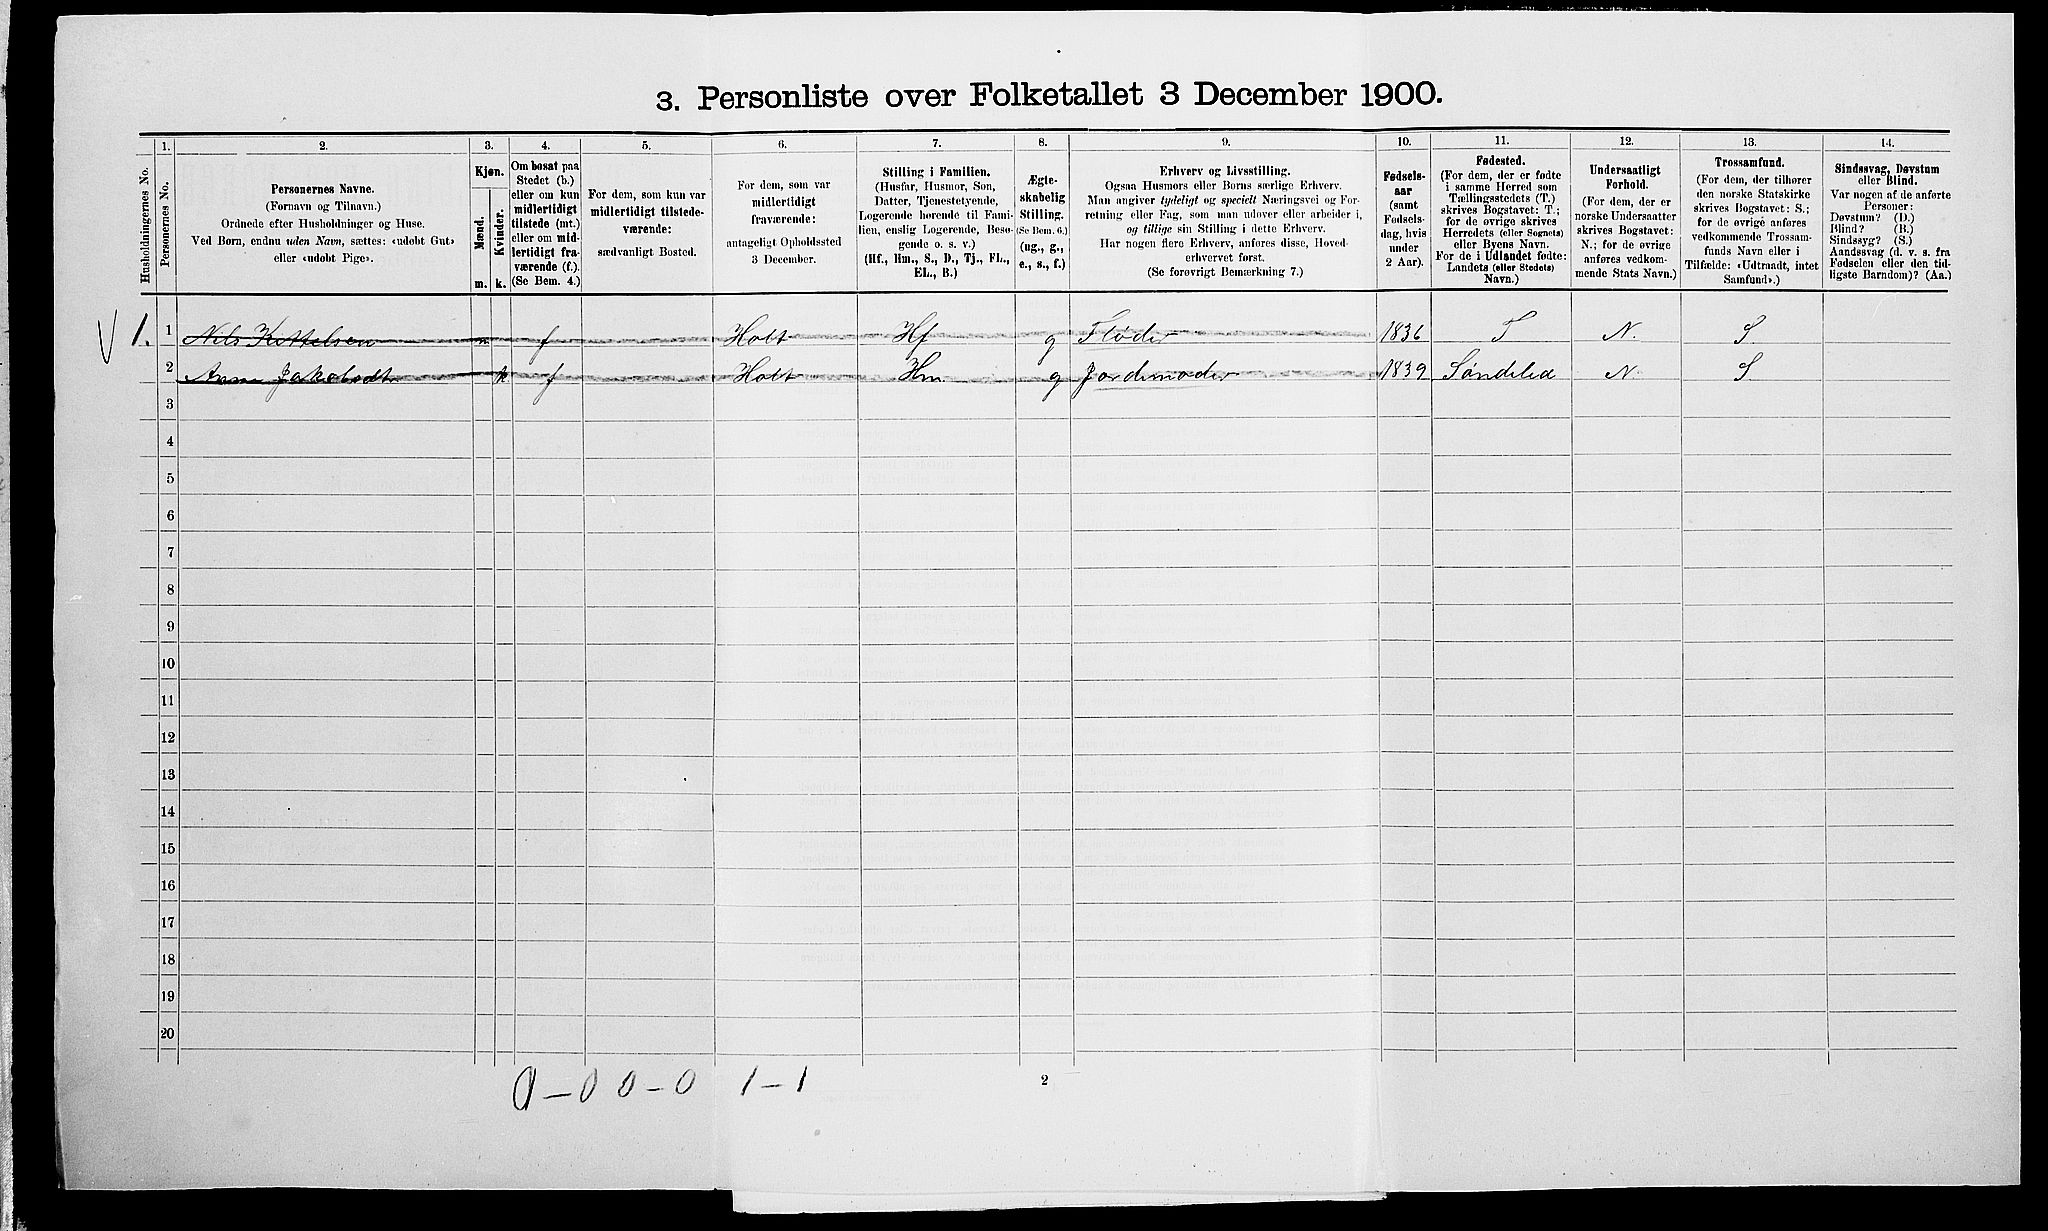 3. Personliste over Folketallet 3 December 1900.
Husholdningernes No.
1.
Personernes No.
2.
Personernes Navne.
(Fornavn og Tilnavn.)
Ordnede efter Husholdninger og Huse.
Ved Børn, endnu uden Navn, sættes: «udøbt Gut»
eller «udøbt Pige».
3.
Kjøn.
Mænd.
Kvinder.
m. k.
4.
Om bosat paa
Stedet (b.)
eller om kun
midlertidigt
tilstede (mt.)
eller om mid-
lertidigt fra-
værende (f.).
(Se Bem. 4.)
5.
For dem, som kun var
midlertidigt tilstede-
værende:
sædvanligt Bosted.
6.
For dem, som var
midlertidigt
fraværende:
antageligt Opholdssted
3 December.
7.
Stilling i Familien.
(Husfar, Husmor, Søn,
Datter, Tjenestetyende,
Logerende hørende til Fami-
lien, enslig Logerende, Besø-
gende o. s. v.)
(Hf., Hm., S., D., Tj., FL.,
EL., B.)
8.
Ægte-
skabelig
Stilling.
(Se Bem. 6.)
(ug., g.,
e., s., f.)
9.
Erhverv og Livsstilling.
Ogsaa Husmors eller Børns særlige Erhverv.
Man angiver tydeligt og specielt Næringsvei og For-
retning eller Fag, som man udøver eller arbeider i,
og tillige sin Stilling i dette Erhverv.
Har nogen flere Erhverv, anføres disse, Hoved-
erhvervet først.
(Se forøvrigt Bemærkning 7.)
10.
Fødsels-
aar
(samt
Fødsels-
dag, hvis
under
2 Aar).
11.
Fødested.
(For dem, der er fødte
i samme Herred som
Tællingsstedets (T.)
skrives Bogstavet: T.;
for de øvrige skrives
Herredets (eller Sognets)
eller Byens Navn.
For de i Udlandet fødte:
Landets (eller Stedets)
Navn.)
12.
Undersaatligt
Forhold.
(For dem, der er
norske Undersaatter
skrives Bogstavet:
N.; for de øvrige
anføres vedkom-
mende Stats Navn.)
13.
Trossamfund.
(For dem, der tilhører
den norske Statskirke
skrives Bogstavet: S.;
for de øvrige anføres
vedkommende Trossam-
funds Navn eller i
Tilfælde: «Udtraadt, intet
Samfund».)
14.
Sindssvag, Døvstum
eller Blind.
Var nogen af de anførte
Personer:
Døvstum? (D.)
Blind? (B.)
Sindssyg? (S.)
Aandssvag (d. v. s. fra
Fødselen eller den tid-
ligste Barndom)? (Aa.)
V 1. 1 Nils Kittelsen m f Holt Hf g Fløder 1836 T N. S.
2 Anne Jakobsdt. k f Holt Hm g Jordemoder 1839 Søndeled N. S
3
4
5
6
7
8
9
10
11
12
13
14
15
16
17
18
19
20
0 – 0 0 – 0 1 – 1 2